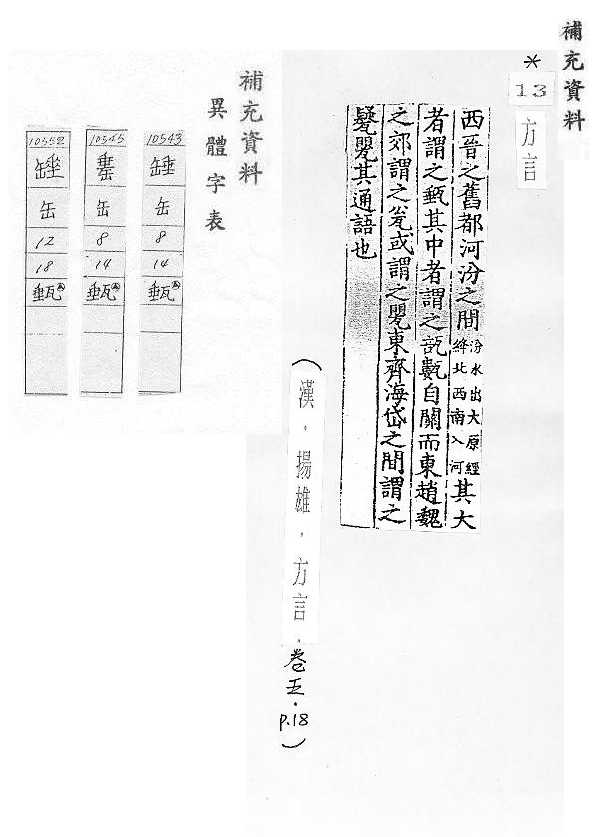 補充資料
*
13
方言
西晉之舊都河汾之間汾水出大原經絳北西南入河其大
者謂之甀其中者謂之瓿甊自關而東趙魏
之郊謂之瓮或謂之甖東齊海岱之間謂之
甖其通語也
(漢．揚雄．方言．卷五．p.18)
補充資料
異體字表
10543
缶
8
14
甀
10545
缶
8
14
甀
10552
缶
12
18
甀